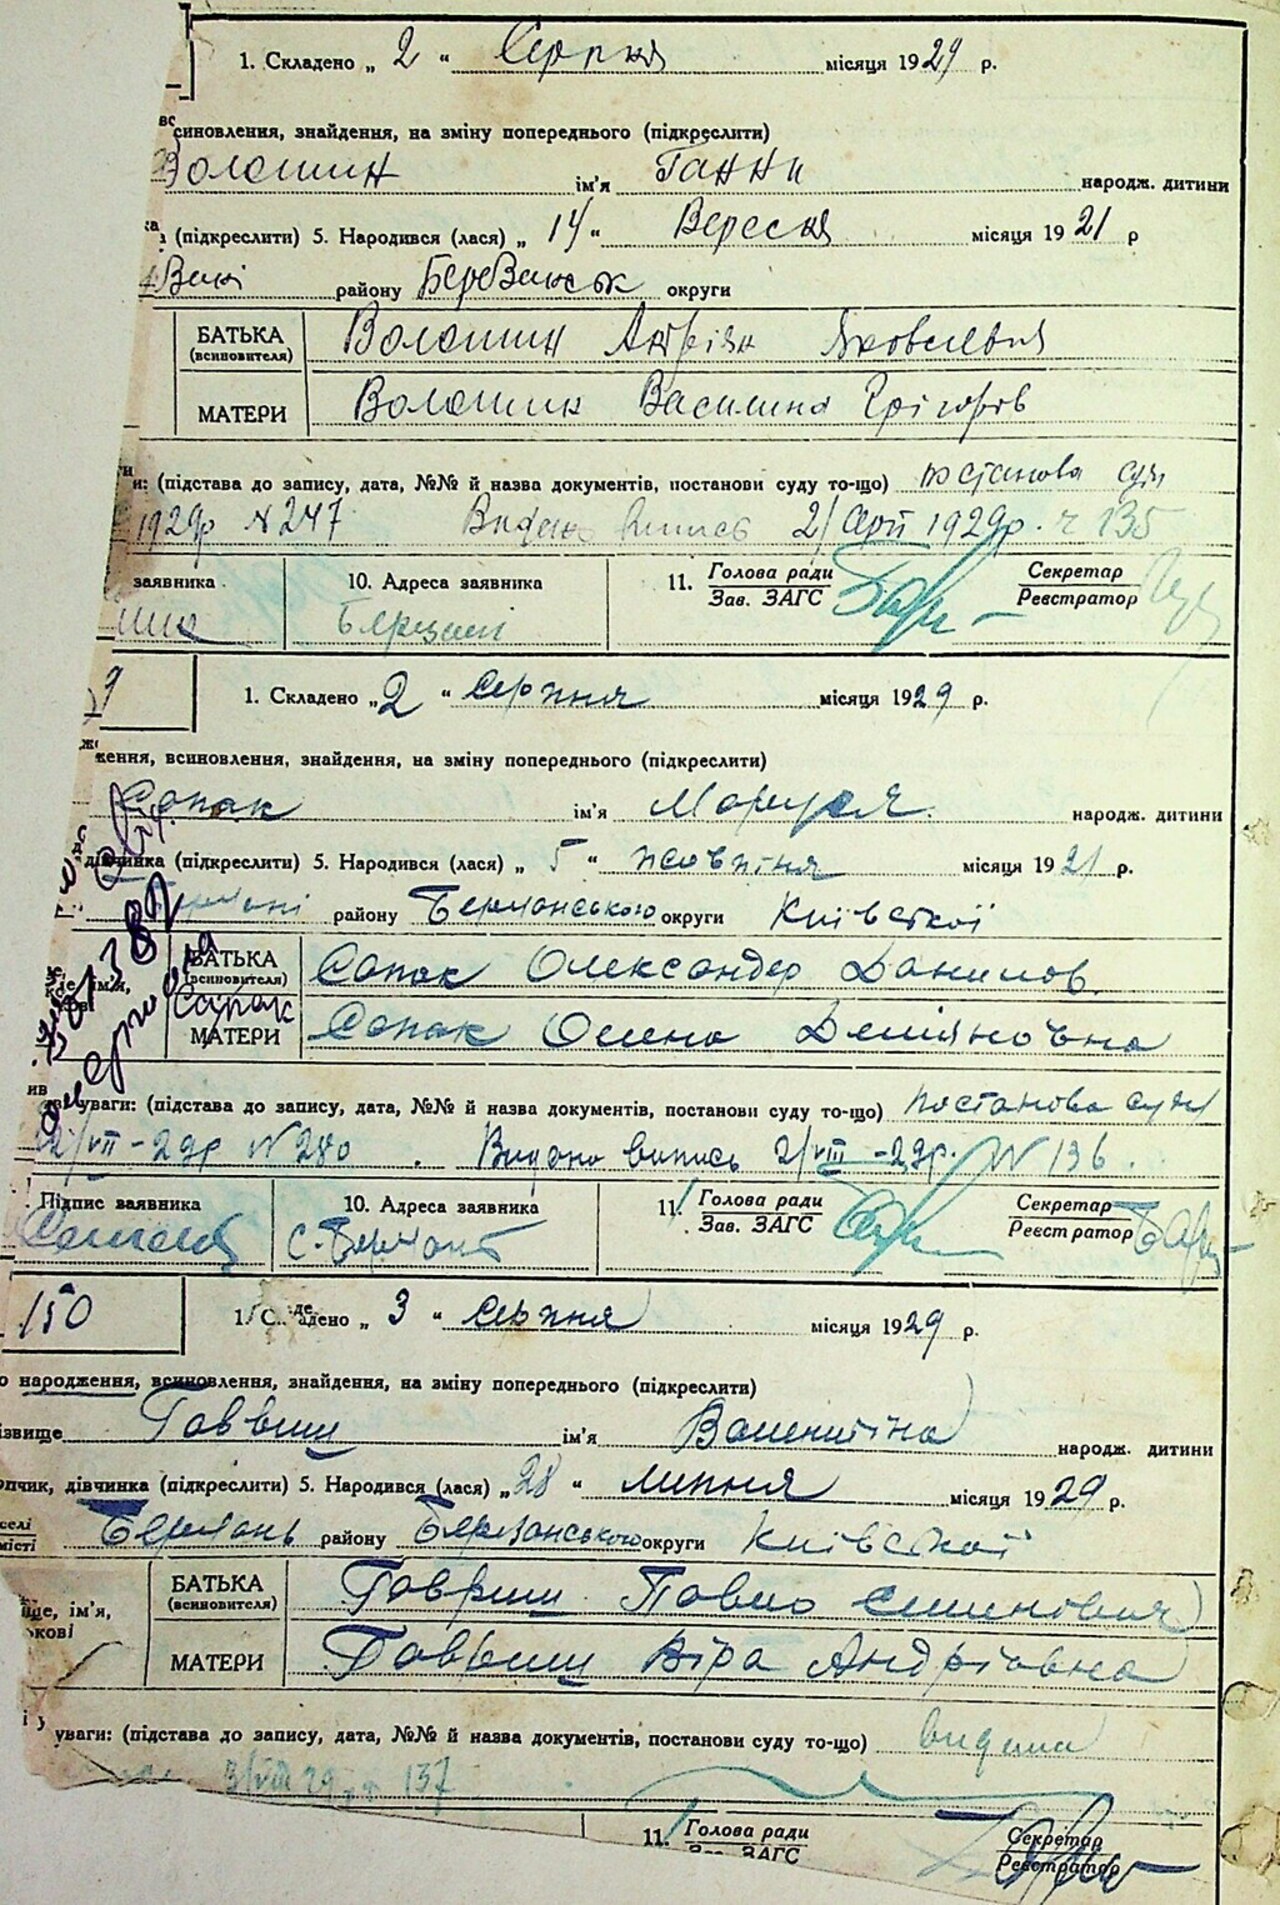 1. Складено „ 2 “ Серпня місяця 1929 р.
синовлення, знайдення, на зміну попереднього (підкреслити)
Волошин ім'я Ганни народж. дитини
(підкреслити) 5. Народився (лася) „ 14 “ Вересня місяця 1921 р
району Березанськ округи
БАТЬКА Волошин Андріян Яковлевич
(всиновителя)
МАТЕРИ Волошин Василина Грігоров
и: (підстава до запису, дата, №№ й назва документів, постанови суду то-що) постанова суду
1929р N 247 Видано випись 2/ серп 1929р. ч 135
заявника 10. Адреса заявника 11. Голова ради Секретар
Зав. ЗАГС Реєстратор
Березані
9 1. Складено „ 2 “ Серпня місяця 1929 р.
ження, всиновлення, знайдення, на зміну попереднього (підкреслити)
Сопак ім'я Маруся народж. дитини
дівчинка (підкреслити) 5. Народився (лася) „ 5 “ жовтня місяця 1921 р.
району Березанського округи Київської
БАТЬКА Сопак Олександер Данилов.
(всиновителя)
Сапак
МАТЕРИ Сопак Олена Деміяновна
уваги: (підстава до запису, дата, №№ й назва документів, постанови суду то-що) постанова суду
2/VII-29р N 280. Видано випись 2/VIII-29р. N 136.
Підпис заявника 10. Адреса заявника 11. Голова ради Секретар
Зав. ЗАГС Реєстратор
с. Березань
150 1. Складено „ 3 “ Серпня місяця 1929 р.
о народження, всиновлення, знайдення, на зміну попереднього (підкреслити)
ізвище Гавриш ім'я Валентіна народж. дитини
опчик, дівчинка (підкреслити) 5. Народився (лася) „ 28 “ липня місяця 1929 р.
селі
місті Березань району Березанського округи Київської
БАТЬКА Гавриш Павло Семенович
(всиновителя)
ще, ім'я,
ькові
МАТЕРИ Гавриш Віра Андріовна
уваги: (підстава до запису, дата, №№ й назва документів, постанови суду то-що) видана
3/VIII 29 137
11. Голова ради Секретар
Зав. ЗАГС Реєстратор